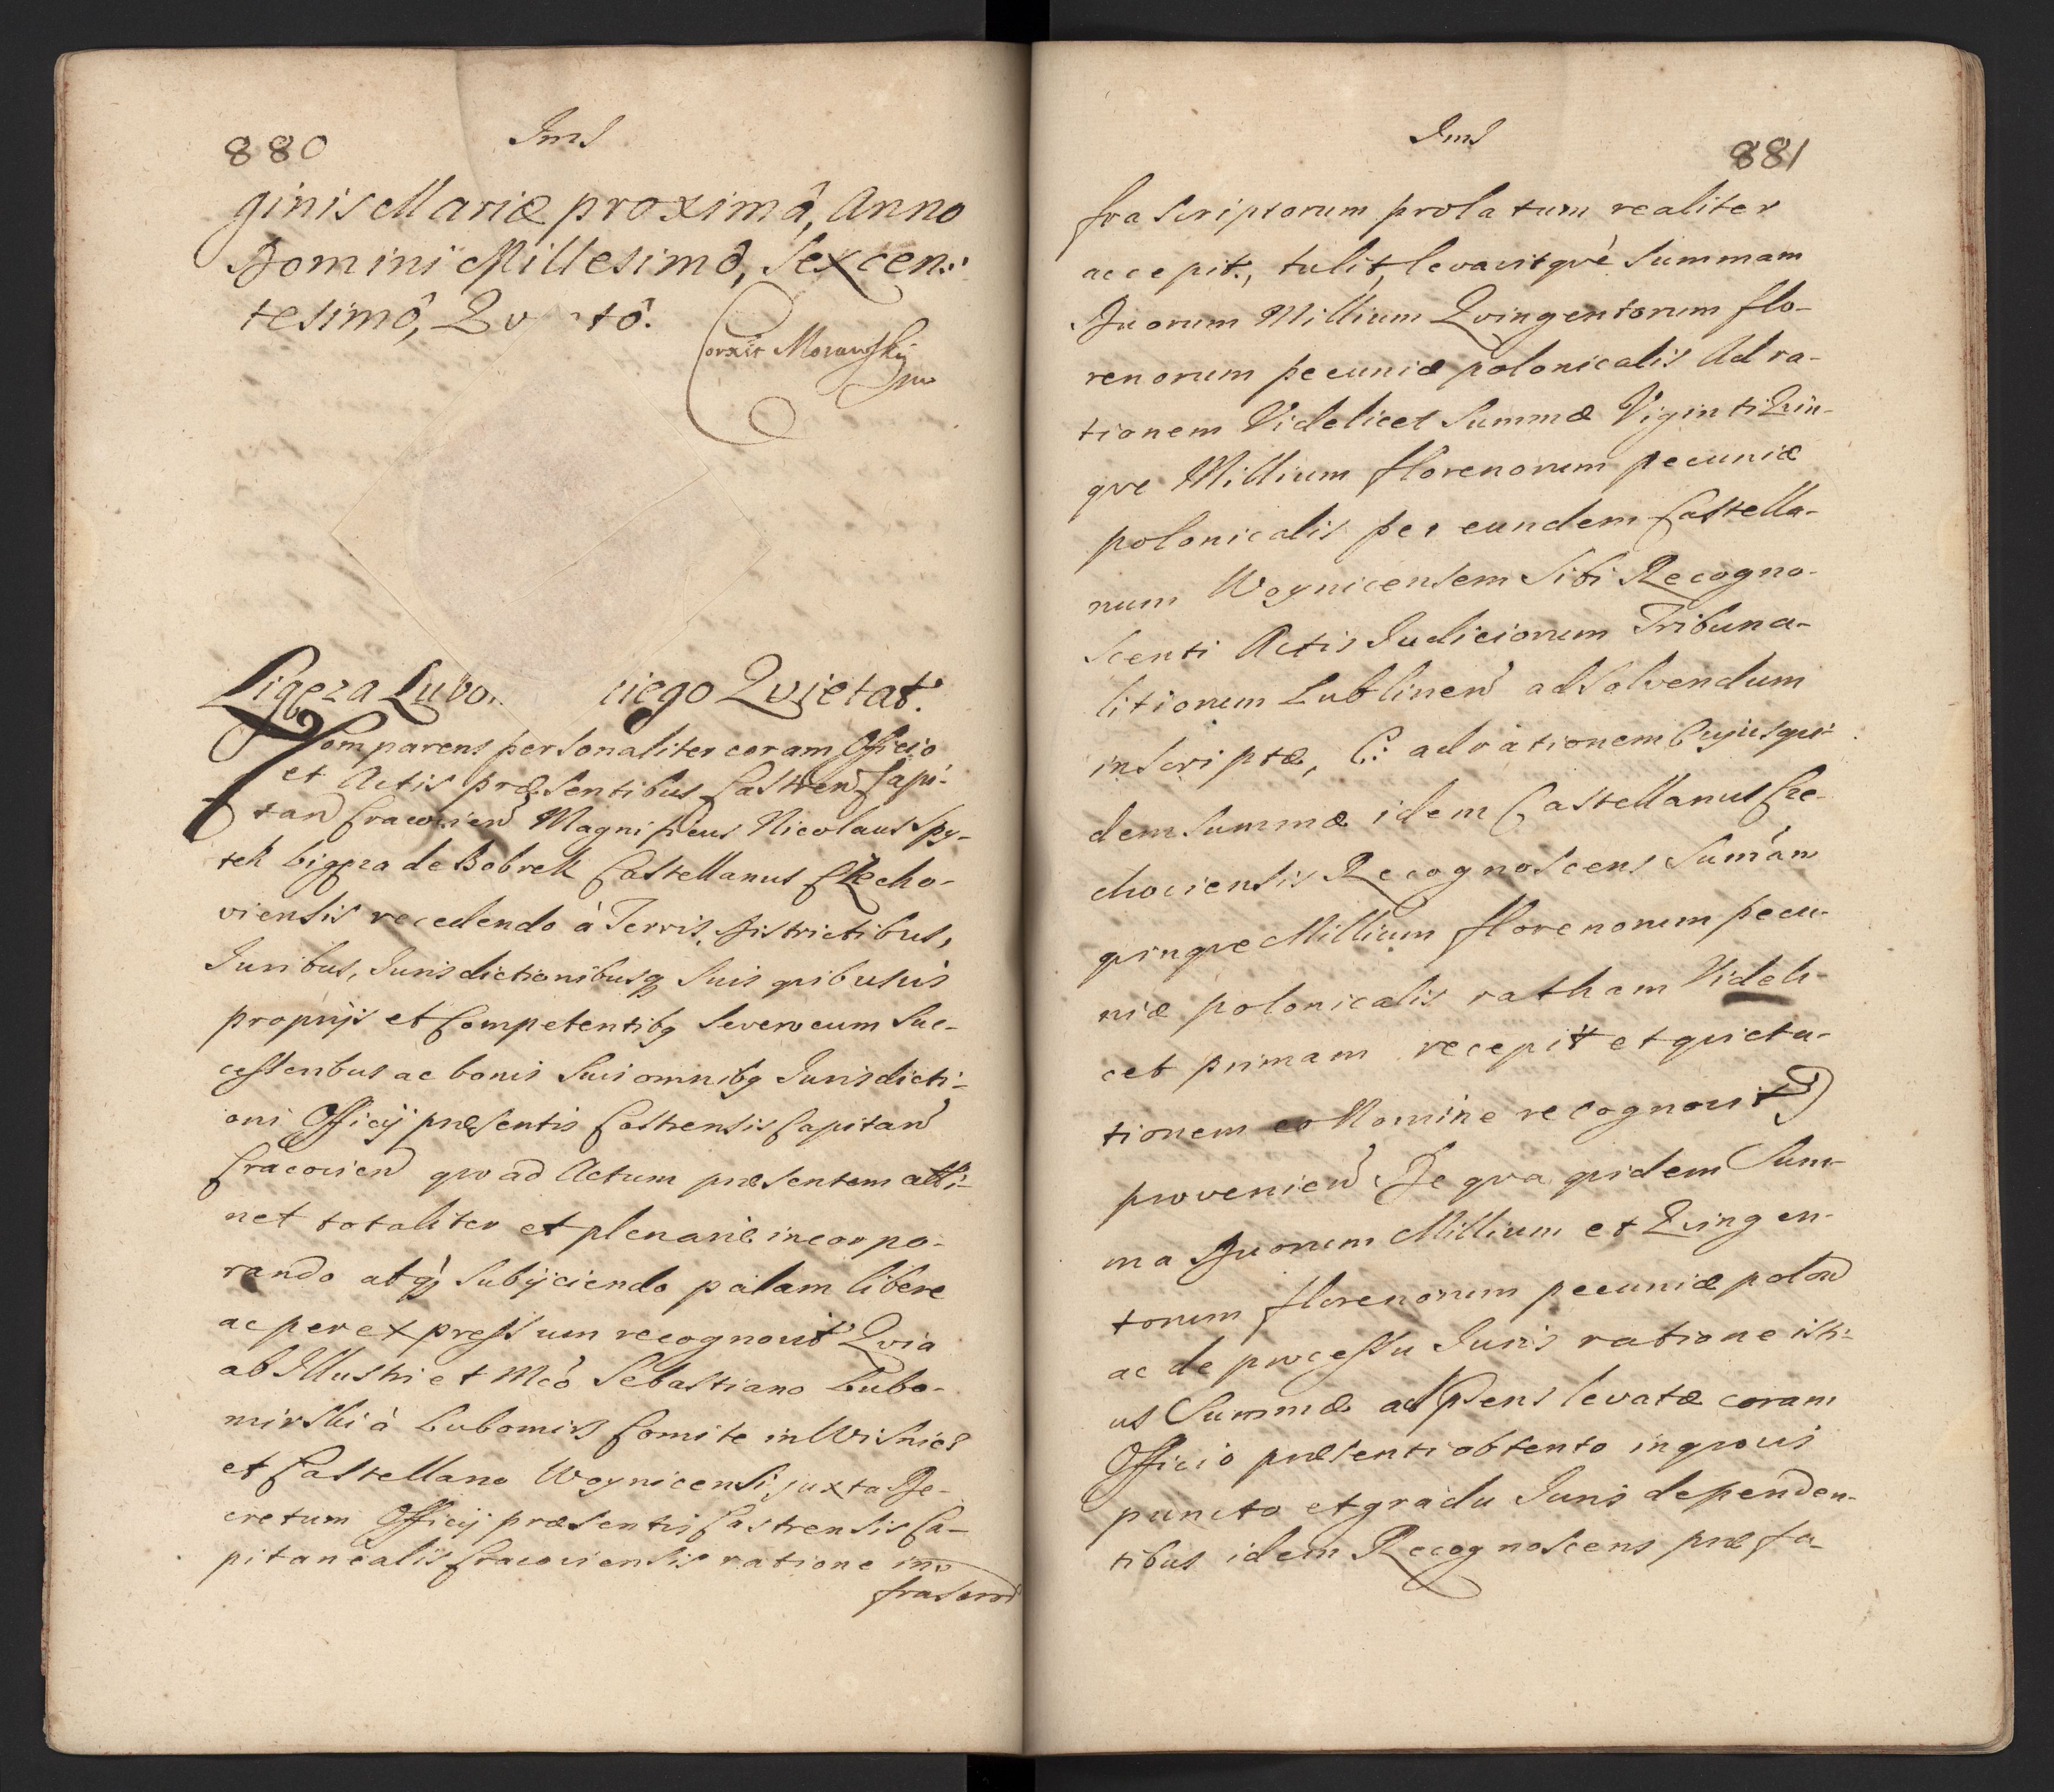 880
Jms
ginis Mariæ proximâ, Anno
Domini Millesimô, Sexcen:
tesimô, Qv tô.
Corxit Morawsky
mp
Ligęza Lubo ciego Qvietat.
Comparens personaliter coram Officio
et Actis præsentibus Castren Capi-
tan Cracovien Magnificus Nicolaus Spy-
tek Ligęza de Bobrek Castellanus Czecho-
viensis recedendo à Terris, Districtibus,
Juribus, Jurisdictionibusq suis qvibusvis
proprijs et Competentibq se vero cum Suc-
cessoribus ac bonis suis omnibq Jurisdicti-
oni Officij præsentis Castrensis Capitan
Cracovien qvo ad Actum præsentem atti-
net totaliter et plenariè incorpo-
rando atq subijciendo palam libere
ac per expressum recognovit Qvia
ab Illustri et Mco Sebastiano Lubo-
mirski à Lubomirz Comite in Wisnicz
et Castellano Woynicensi juxta De-
cretum Officij præsentis Castrensis Ca-
pitanealis Cracoviensis ratione in-
frascrip
Jms
881
frascriptorum prolatum realiter
accepit, tulit, levavitqvè summam
Duorum Millium Qvingentorum flo-
renorum pecuniæ polonicalis Ad ra-
tionem Videlicet Summæ Viginti Qvin-
qve Millium florenorum pecuniæ
polonicalis per eundem Castella-
num Woynicensem sibi Recogno-
scenti Actis Judiciorum Tribuna-
litiorum Lublinen adsolvendum
inscriptæ, C: ad rationem Cujus qvi-
dem summæ idem Castellanus Cze-
choviensis Recognoscens Sumam
qvinqve Millium florenorum pecu-
niæ polonicalis ratham Videli-
cet primam recepit et qvieta-
tionem eo Nomine recognovit)
provenien De qva qvidem Sum-
ma Duorum Millium et Qvingen-
torum florenorum pecuniæ polon
ac de processu Juris ratione isti-
us Summæ ad psens levatæ coram
Officio præsenti obtento in qvovis
puncto et gradu Juris dependen-
tibus idem Recognoscens præfa-